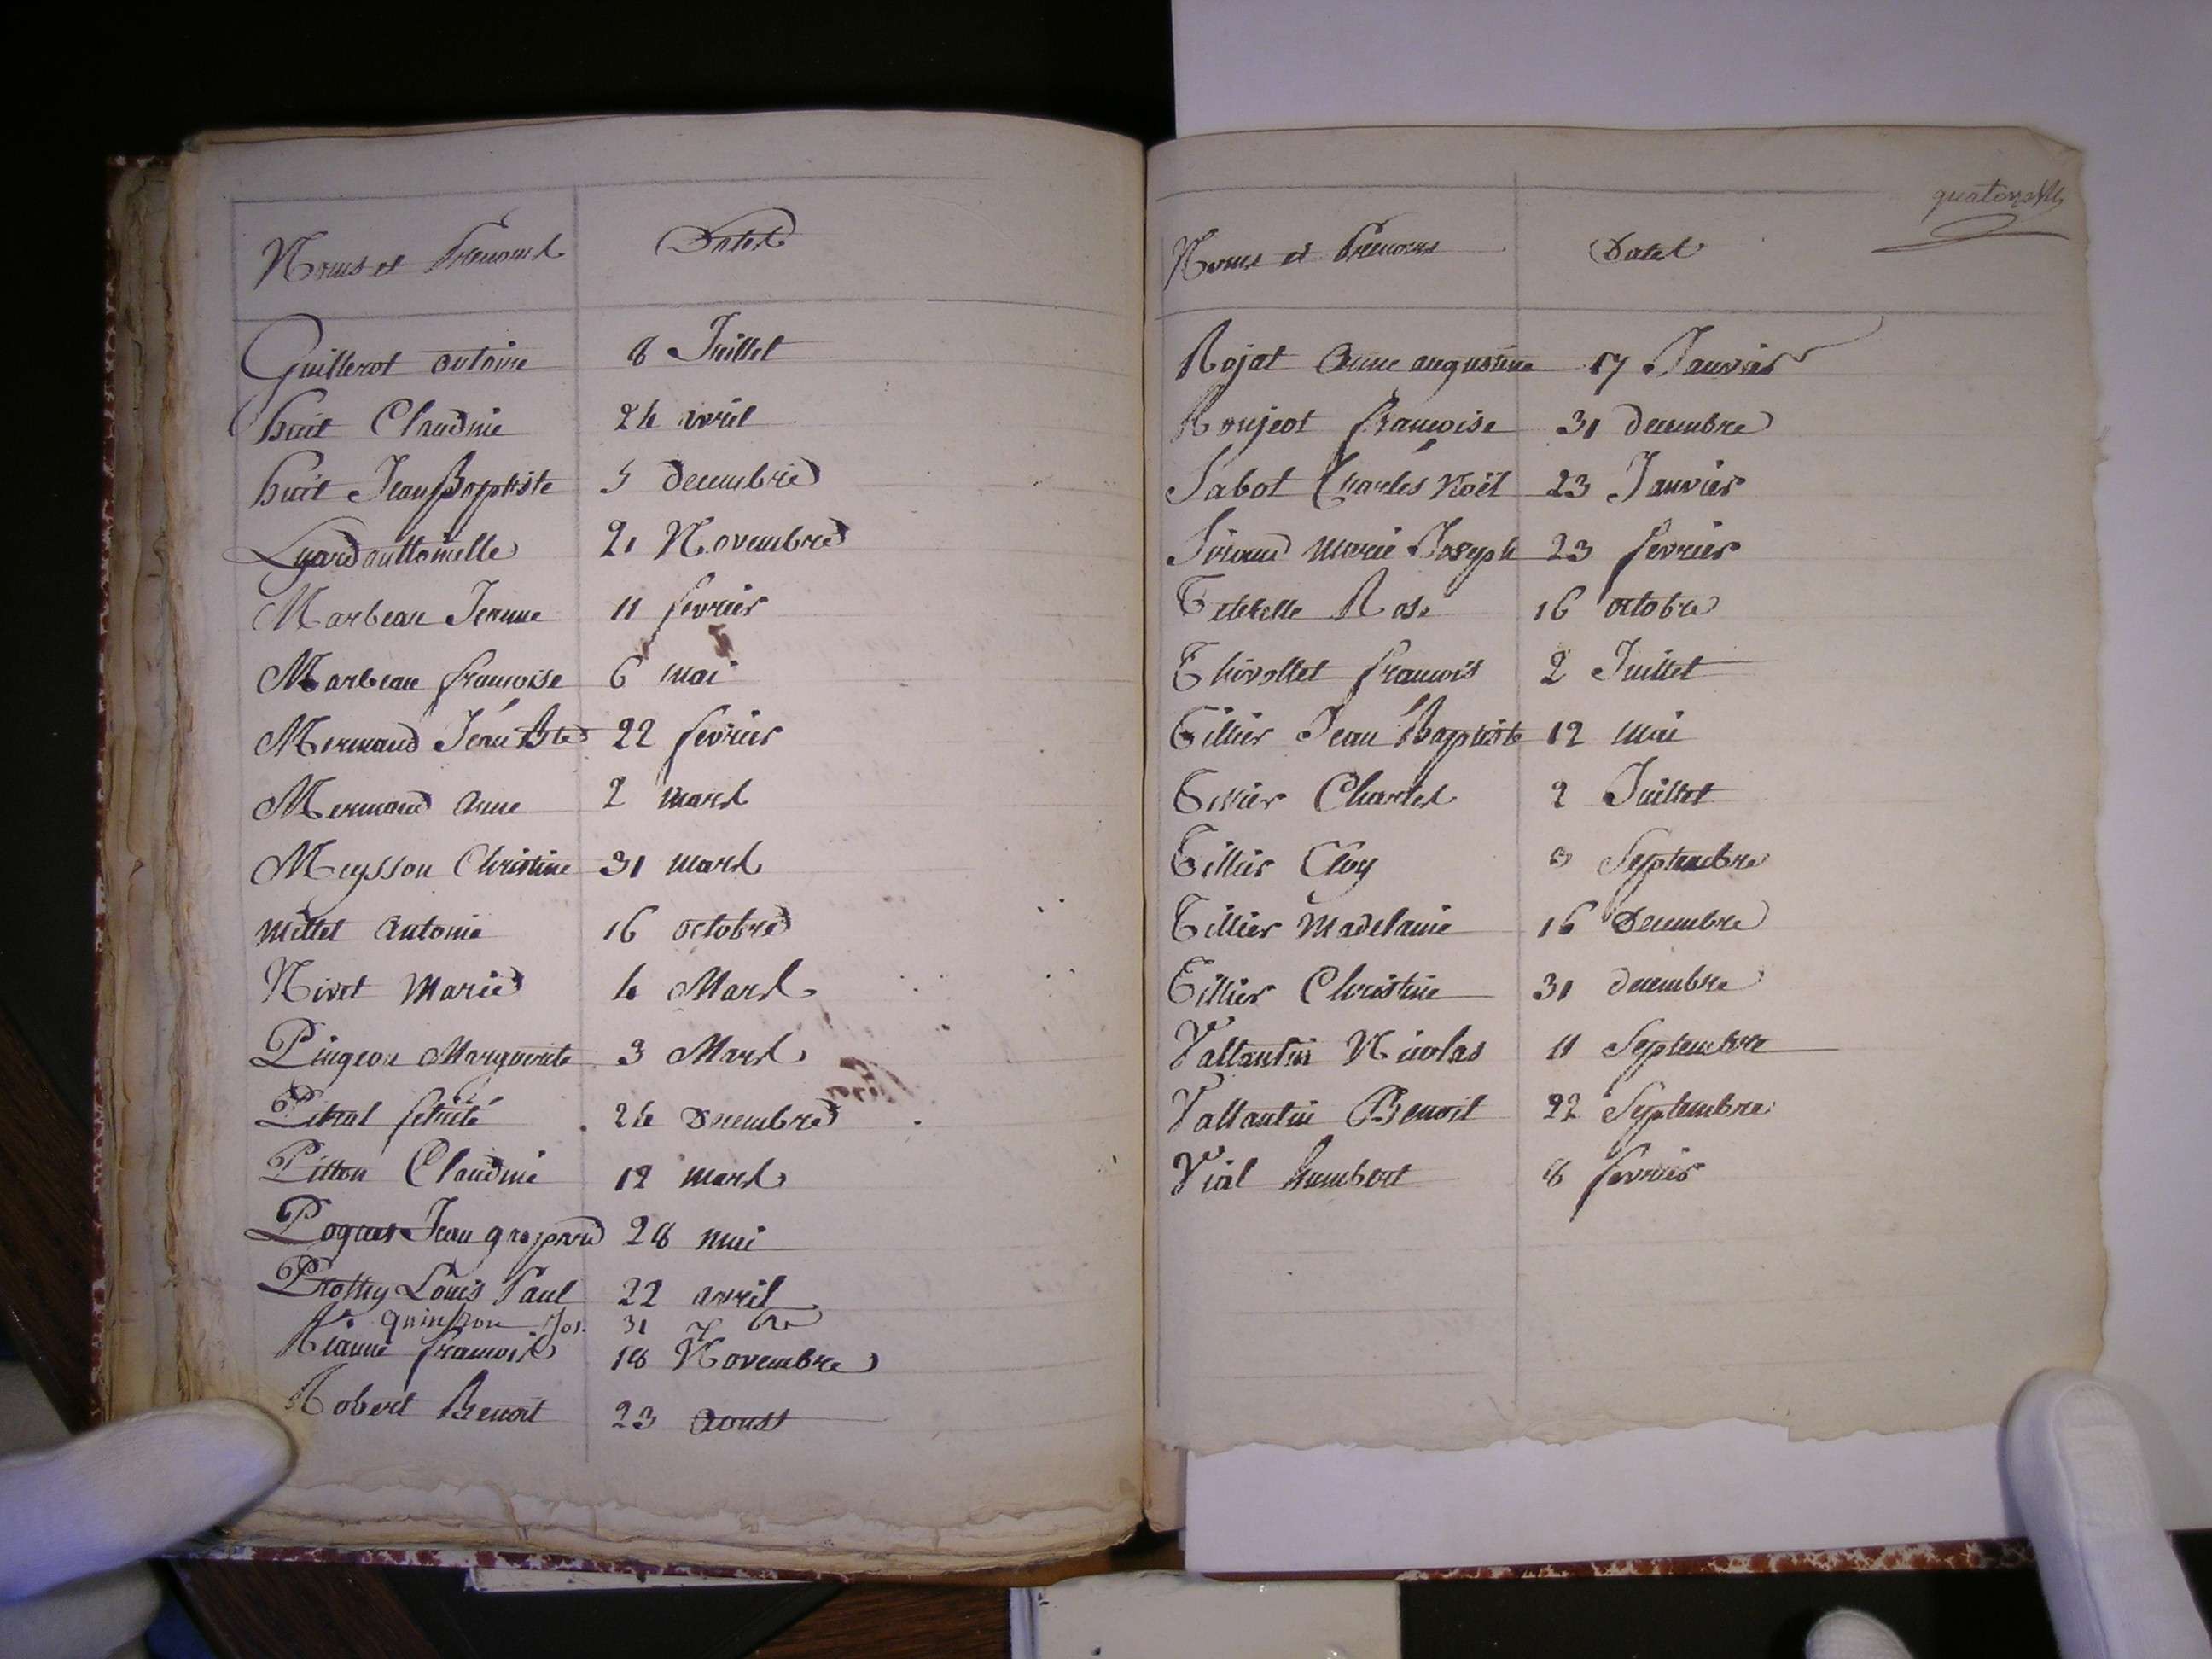 Noms et Prenoms Dates
Guillerot antoine 8 Juillet
huit Claudine 24 avril
huit Jean Baptiste 5 decembre
Lyard anthoinette 21 Novembre
Marbeau Jeanne 11 fevrier
Marbeau francoise 6 mai
Mermand Jean Bte 22 fevrier
Mermand anne 2 mars
Meysson Christine 31 mars
millet antoine 16 octobre
Nivet Marie 4 Mars
Pingeon Marguerite 3 Mars
24 Decembre
Pitton Claudine 12 mars
Jean gaspard 28 mai
Louis Paul 22 avril
quinson Jos. 31 7bre
francois 18 Novembre
Robert Benoit 23 aoust
quatorze
Noms et Prenoms Dates
Rojat anne augustine 17 Janvier
Roujeot francoise 31 decembre
Sabot Charles Noël 23 Janvier
Siraud Marie Joseph 23 fevrier
Rose 16 octobre
Thivollet francois 2 Juillet
Tillier Jean Baptiste 12 mai
Tillier Charles 2 Juillet
Tillier Eloy 3 Septembre
Tillier Madelaine 16 Decembre
Tillier Christine 31 decembre
Vallantin Nicolas 11 Septembre
Vallantin Benoit 22 Septembre
Vial humbert 8 fevrier